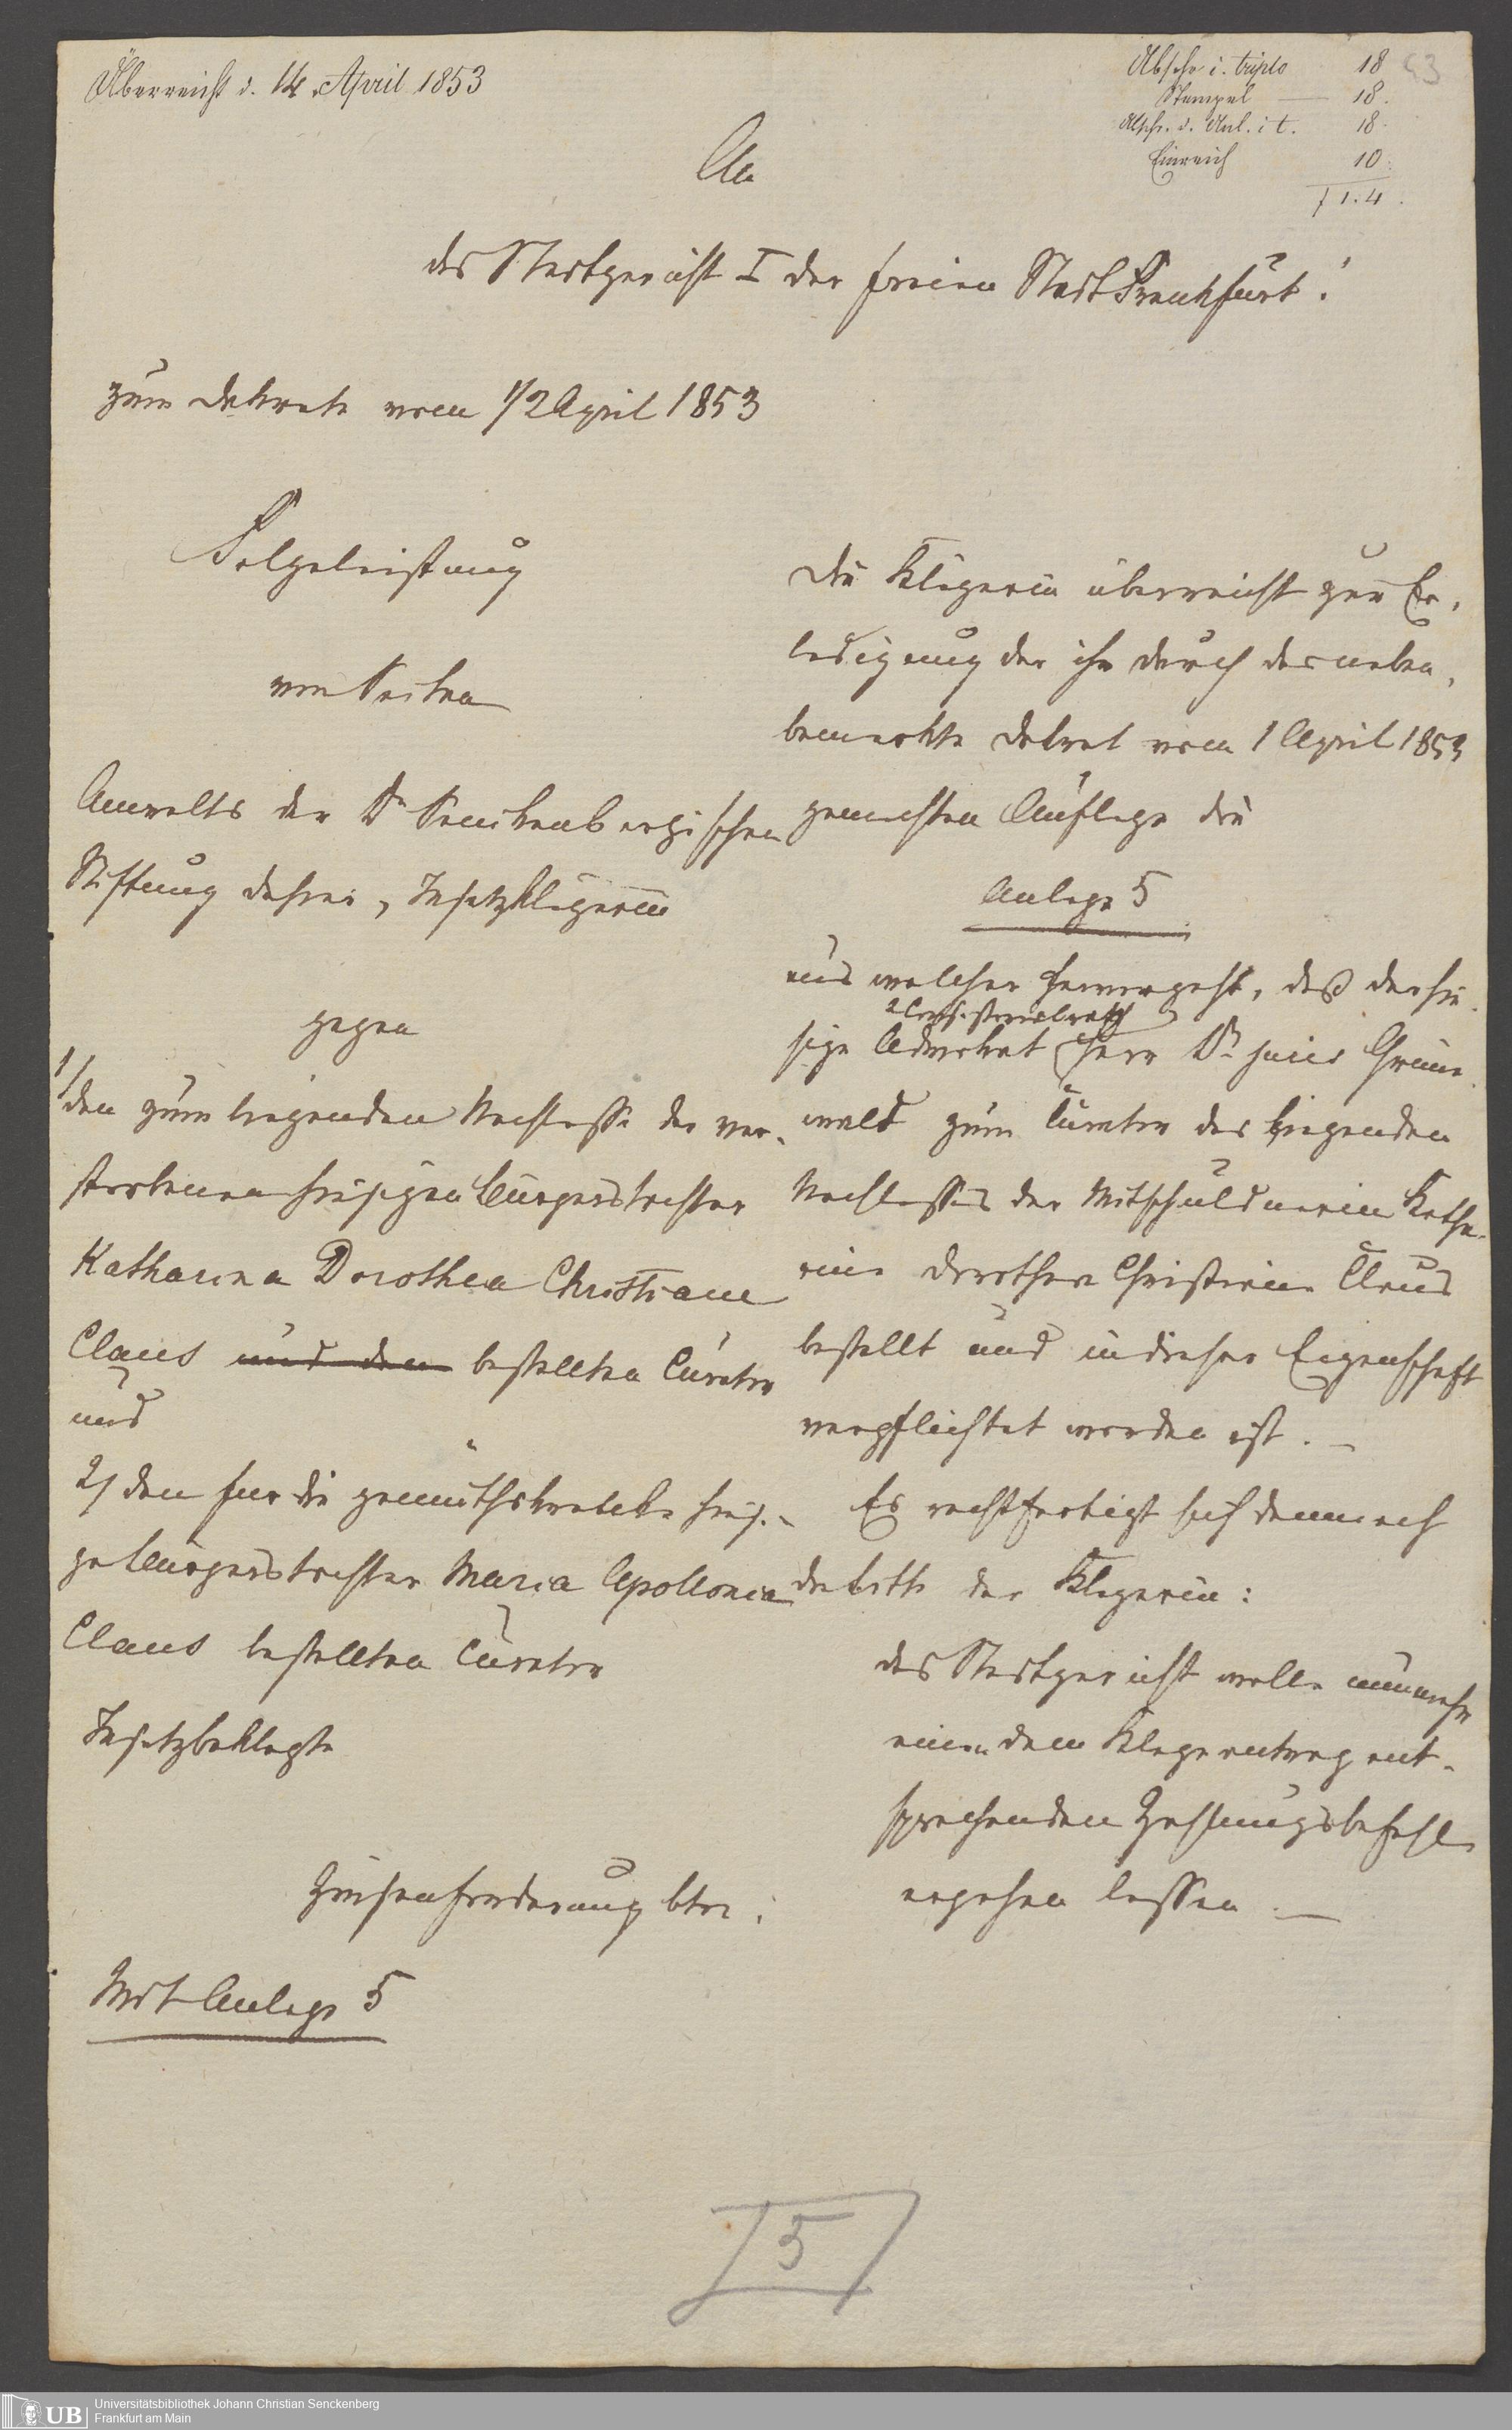 Überreicht d. 14. April 1853
Abschr i. triplo 18
Stempel — 18.
Abschr. d. Anl. i t. 18.
Einreich 10.
f 1.4.
53
An
das Stadtgericht I der freien Stadt Frankfurt!
zum Dekrete vom 1/2 April 1853
Folgeleistung
von Seiten
Anwalts der Dr Senckenbergischen
Stiftung dahier, Insatzklägerin
gegen
1/
den zum liegenden Nachlasse der ver-
storbenen hiesigen Bürgerstochter
Katharina Dorothea Christiane
Claus und den bestellten Curator
und
2/ den für die gemüthskranke hiesi-
ge Bürgerstochter Maria Apollonia
Claus bestellten Curator
Insatzbeklagte
Zinsenforderung btr.
Mit Anlage 5
Die Klägerin überreicht zur Er-
ledigung der ihr durch das neben-
bemerkte Dekret vom 1 April 1853
gemachten Auflage die
Anlage 5
aus welcher hervorgeht, daß der hie-
Consistorialrath
sige Advokat Herr Dr juris Grune-
wald zum Curator des liegenden
Nachlasses der Mitschuldnerin Katha-
rina Dorothea Christiane Claus
bestellt und in dieser Eigenschaft
verpflichtet worden ist. —
Es rechtfertigt sich demnach
die Bitte der Klägerin:
das Stadtgericht wolle nunmehr
einen dem Klagantrag ent-
sprechenden Zahlungsbefehl
ergehen lassen. —
I 5
UB
Universitätsbibliothek Johann Christian Senckenberg
Frankfurt am Main